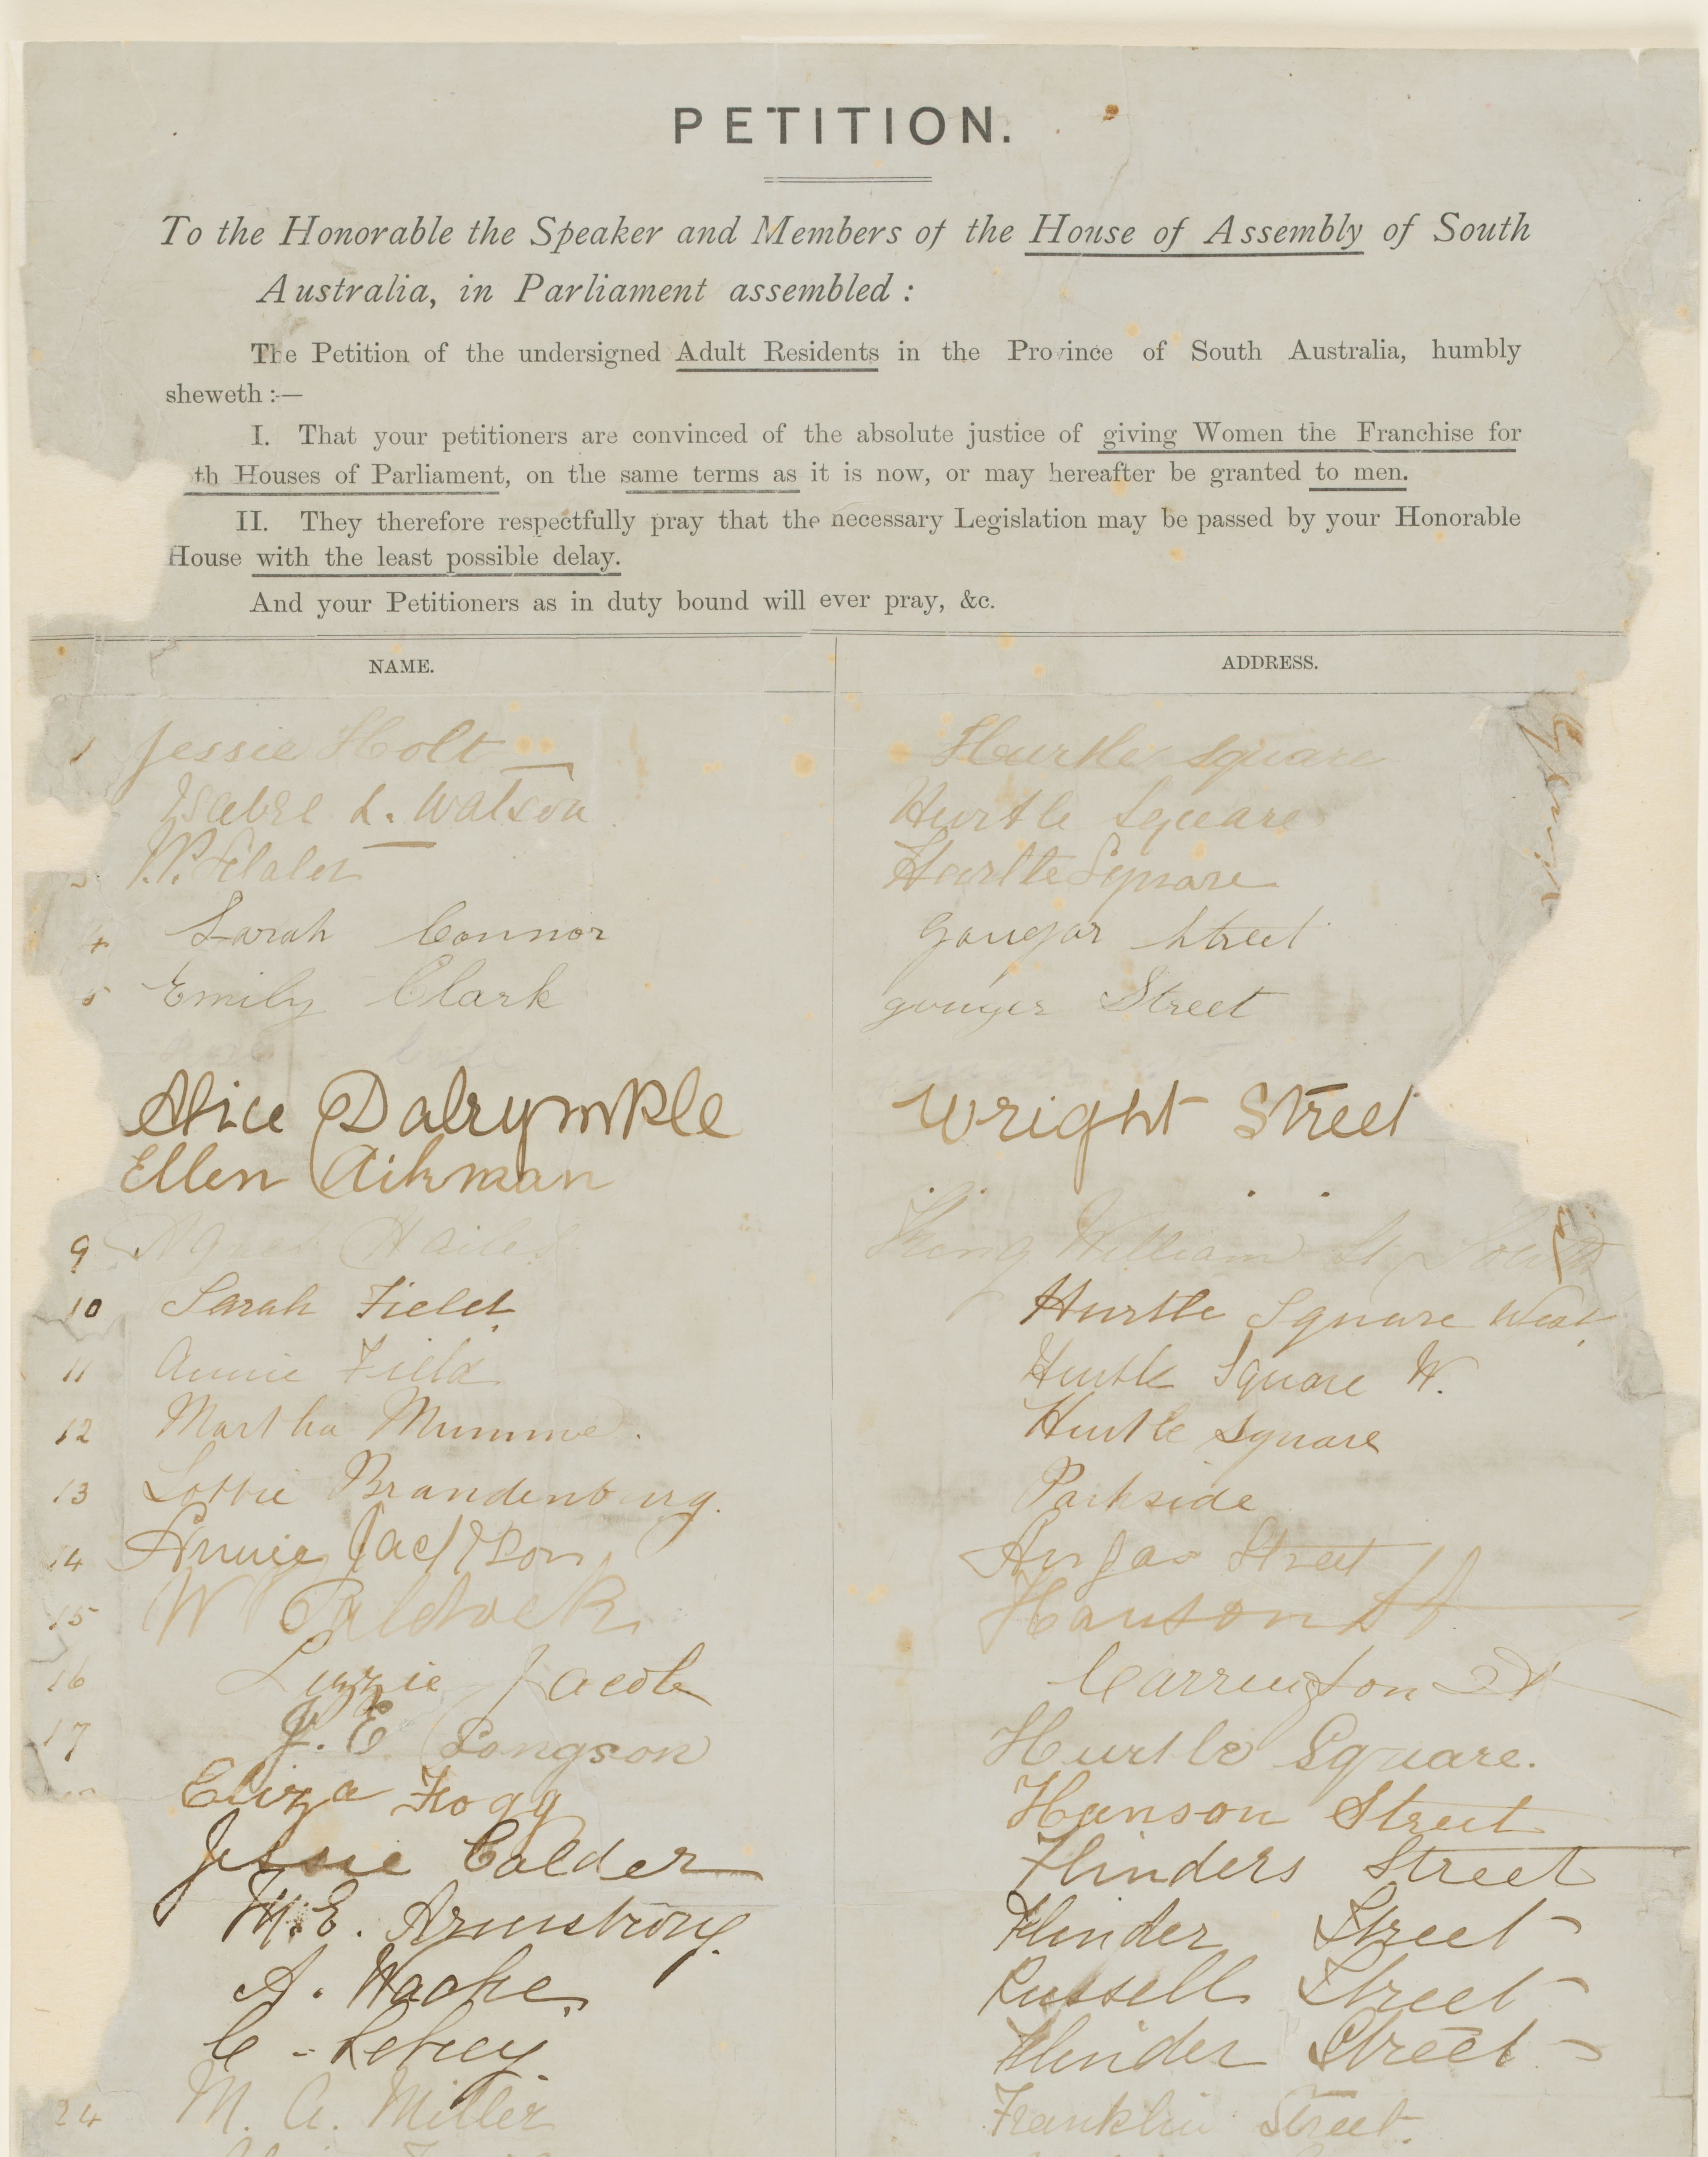 PETITION.
To the Honorable the Speaker and Members of the House of Assembly of South
Australia, in Parliament assembled :
The Petition of the undersigned Adult Residents in the Province of South Australia, humbly
sheweth :—
I. That your petitioners are convinced of the absolute justice of giving Women the Franchise for
th Houses of Parliament, on the same terms as it is now, or may hereafter be granted to men.
II. They therefore respectfully pray that the necessary Legislation may be passed by your Honorable
House with the least possible delay.
And your Petitioners as in duty bound will ever pray, &c.
NAME. ADDRESS.
1 Jessie Holt Hurtle Square
Isabel L. Watson Hurtle Square
3 Hurtle Square
4 Sarah Connor Gougar Street
5 Emily Clark gouger Street
Alice Dalrymkle Wright Street
Ellen Aikman
9 Agnes Hailes King William St South
10 Sarah Field Hurtle Square West
11 Annie Field Hurtle Square W.
12 Martha Mumme. Hurtle Square
13 Lottie Brandenburg. Parkside
14 Annie Jackson Angas Street
15 W Hanson St
16 Lizzie Jacob Carrington St
17 J. E. Longson Hurtle Square.
Eliza Fogg Hanson Street
Jessie Calder Flinders Street
M. E. Armstrong. Flinder Street
A. Russell Street
C - Flinder Street
24 M. A. Miller Franklin Street.